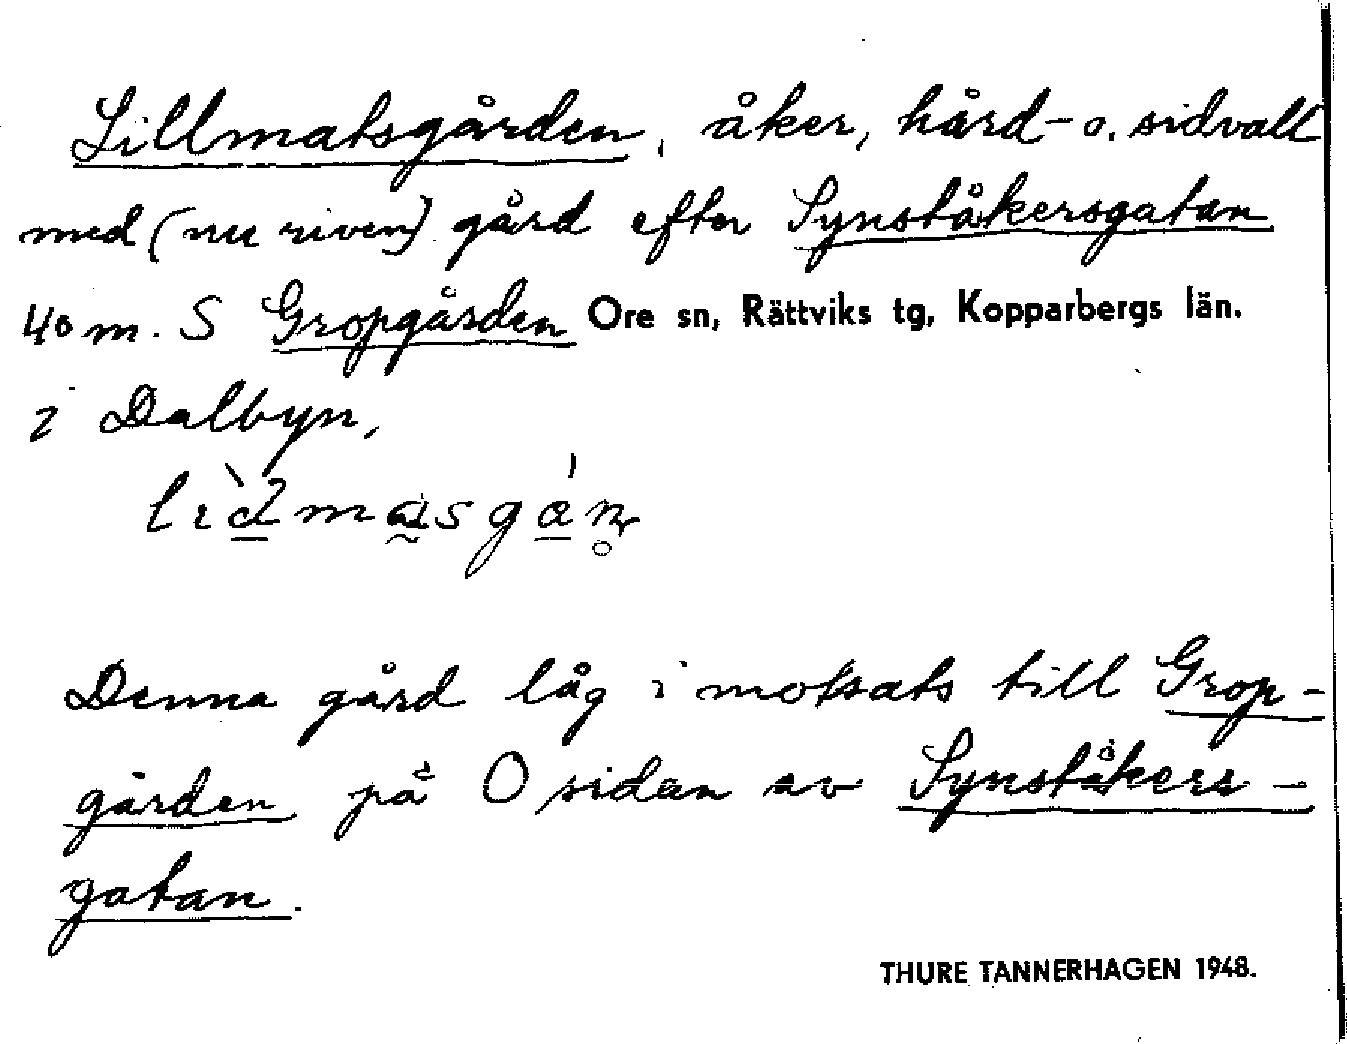 Lillmatsgården, åker, hård- o. sidvall
med (nu riven) gård efter Synståkersgatan
40 m. S Gropgården Ore sn, Rättviks tg, Kopparbergs län.
i Dalbyn,
Denna gård låg i motsats till Grop-
gården på O sidan av Synståkers-
gatan.
THURE TANNERHAGEN 1948.